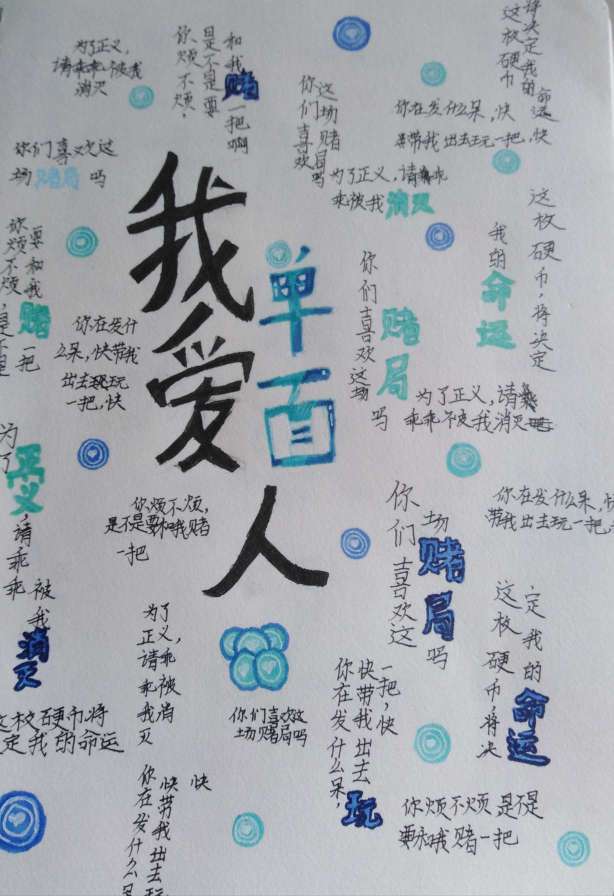 为了正义，
请乖乖被我
消灭
你烦不烦，
是不是要
和我赌一把啊
这枚硬币
将决定我的
命运
你们喜欢
这场赌局吗
你在发什么呆，快
带我出去玩一把，快
你们喜欢这
场赌局吗
为了正义，请乖
乖被我消灭
这枚硬币，将决定
我的命运
我爱
单面
人
你烦不烦，是不是
要和我赌一把
你们喜欢这场
赌局吗
你在发什
么呆，快带我
出去玩
一把，快
为了正义，请
乖乖被我消灭
为了正义，请乖乖
被我消灭
你烦不烦，
是不是要和我赌
一把
你们喜欢这
场赌局吗
你在发什么呆，快
带我出去玩一把
这枚硬币，将决
定我的命运
为了
正义，
请乖
乖被
我消
灭
你们喜欢这
场赌局吗
你在发什么呆，
快带我出去玩
一把，快
这枚硬币将
定我的命运
你在发什么呆
快带我出去玩
快
你烦不烦 是不是
要和我赌一把